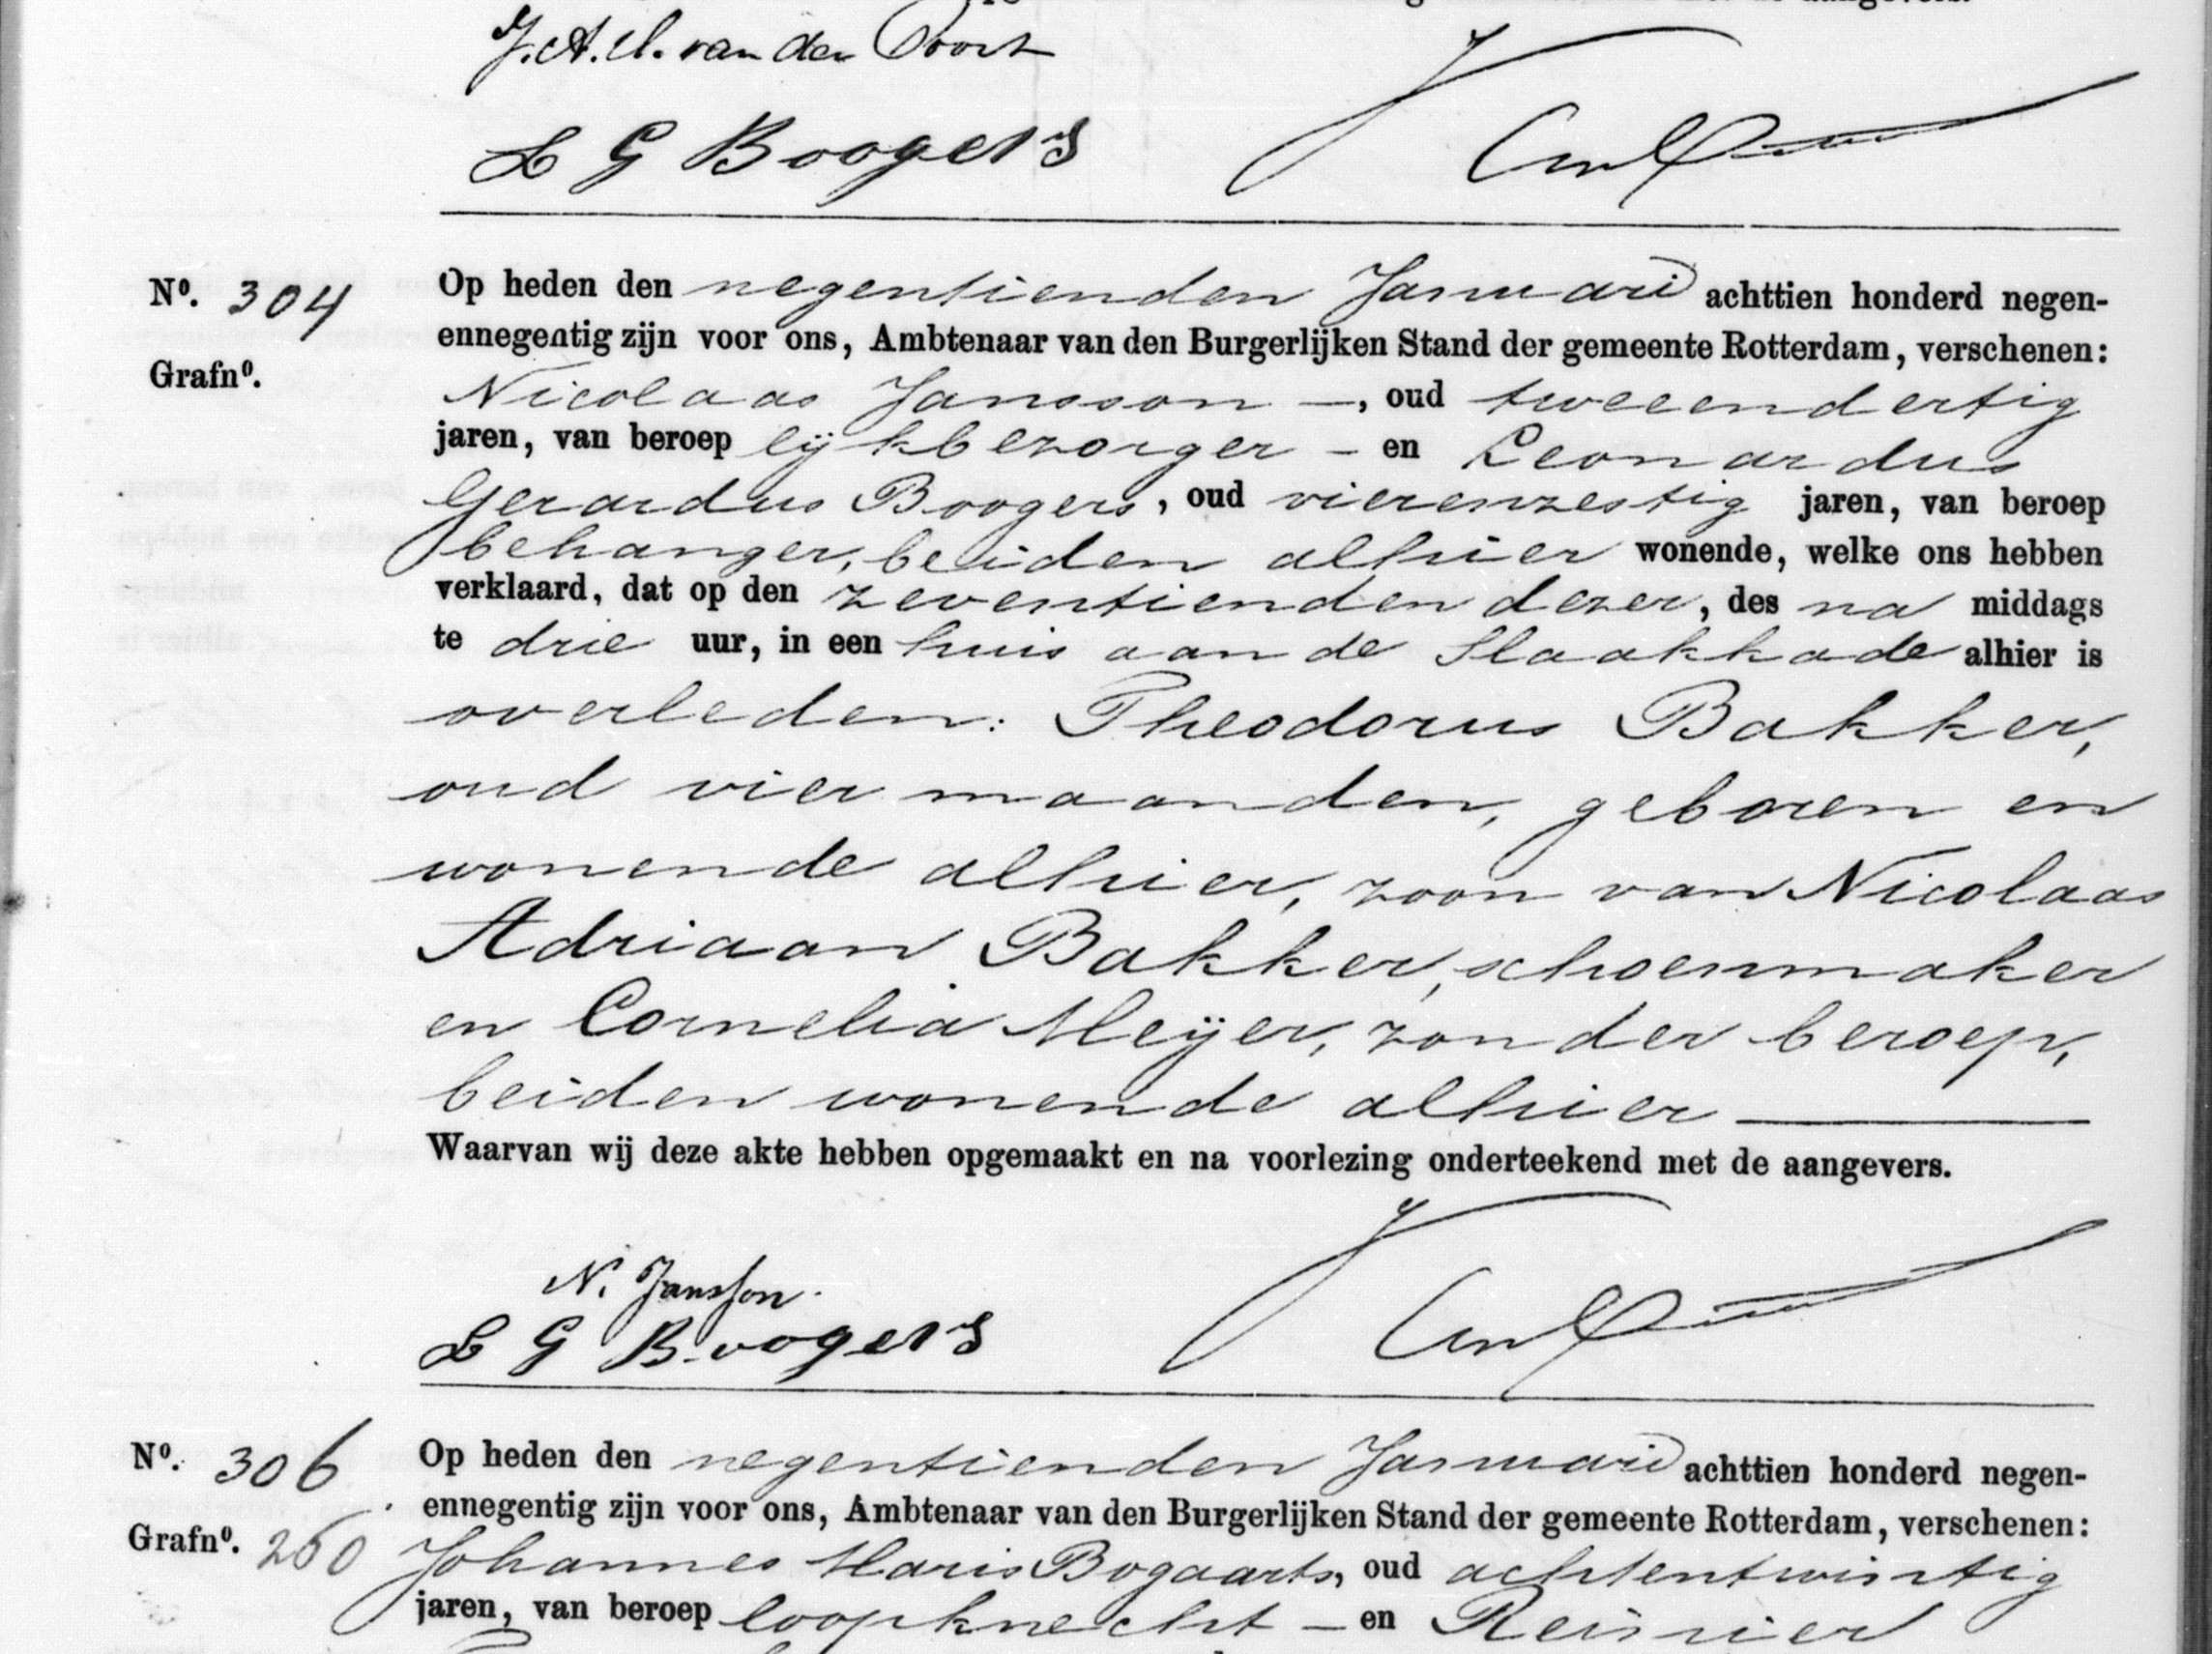 J. A. C. van der Poort
L G Boogers
Nº. 304
Grafnº.
Op heden den negentienden Januari achttien honderd negen-
ennegentig zijn voor ons, Ambtenaar van den Burgerlijken Stand der gemeente Rotterdam, verschenen:
Nicolaas Jansson —, oud tweeendertig
jaren, van beroep lijkbezorger – en Leonardus
Gerardus Boogers, oud vierenzestig jaren, van beroep
behanger, beiden alhier wonende, welke ons hebben
verklaard, dat op den zeventienden dezer, des na middags
te drie uur, in een huis aan de Slaakkade alhier is
overleden: Theodorus Bakker,
oud vier maanden, geboren en
wonende alhier, zoon van Nicolaas
Adriaan Bakker, schoenmaker
en Cornelia Meijer, zonder beroep,
beiden wonende alhier
Waarvan wij deze akte hebben opgemaakt en na voorlezing onderteekend met de aangevers.
N. Jansson.
L G Boogers
Nº. 306
Grafnº. 260
Op heden den negentienden Januari achttien honderd negen-
ennegentig zijn voor ons, Ambtenaar van den Burgerlijken Stand der gemeente Rotterdam, verschenen:
Johannes Maris Bogaarts, oud achtentwintig
jaren, van beroep loopknecht – en Reinier